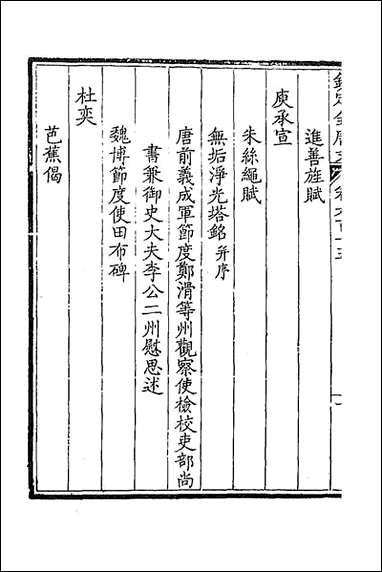 進善旌賦
庾承宣
朱絲繩賦
無垢淨光塔銘并序
唐前義成軍節度鄭滑等州觀察使檢校吏部尚
書兼御史大夫李公二州慰思述
魏博節度使田布碑
杜奕
芭蕉偈